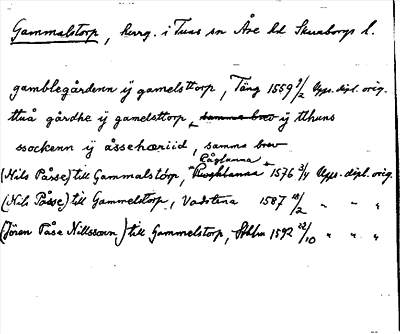 Gammalstorp, herrg. i Tuns sn Åse hd Skaraborgs l.
gamblegårdenn ÿ gamelsttorp, Täng 1559 9/2 Upps. dipl. orig.
ttuå gårdhe ÿ gamelsttorp, samma brev ÿ tthuns
ssockenn ÿ åssehæriid, samma brev
Råglanna
(Nils Påsse) till Gammalstórp, 1576 3/4 Upps. dipl. orig.
(Nils Påsse) till Gammelstorp, Vadstena 1587 18/2 " " "
(Jören Påse Nillssøn) till Gammelstorp, Sthlm 1592 22/10 " " "